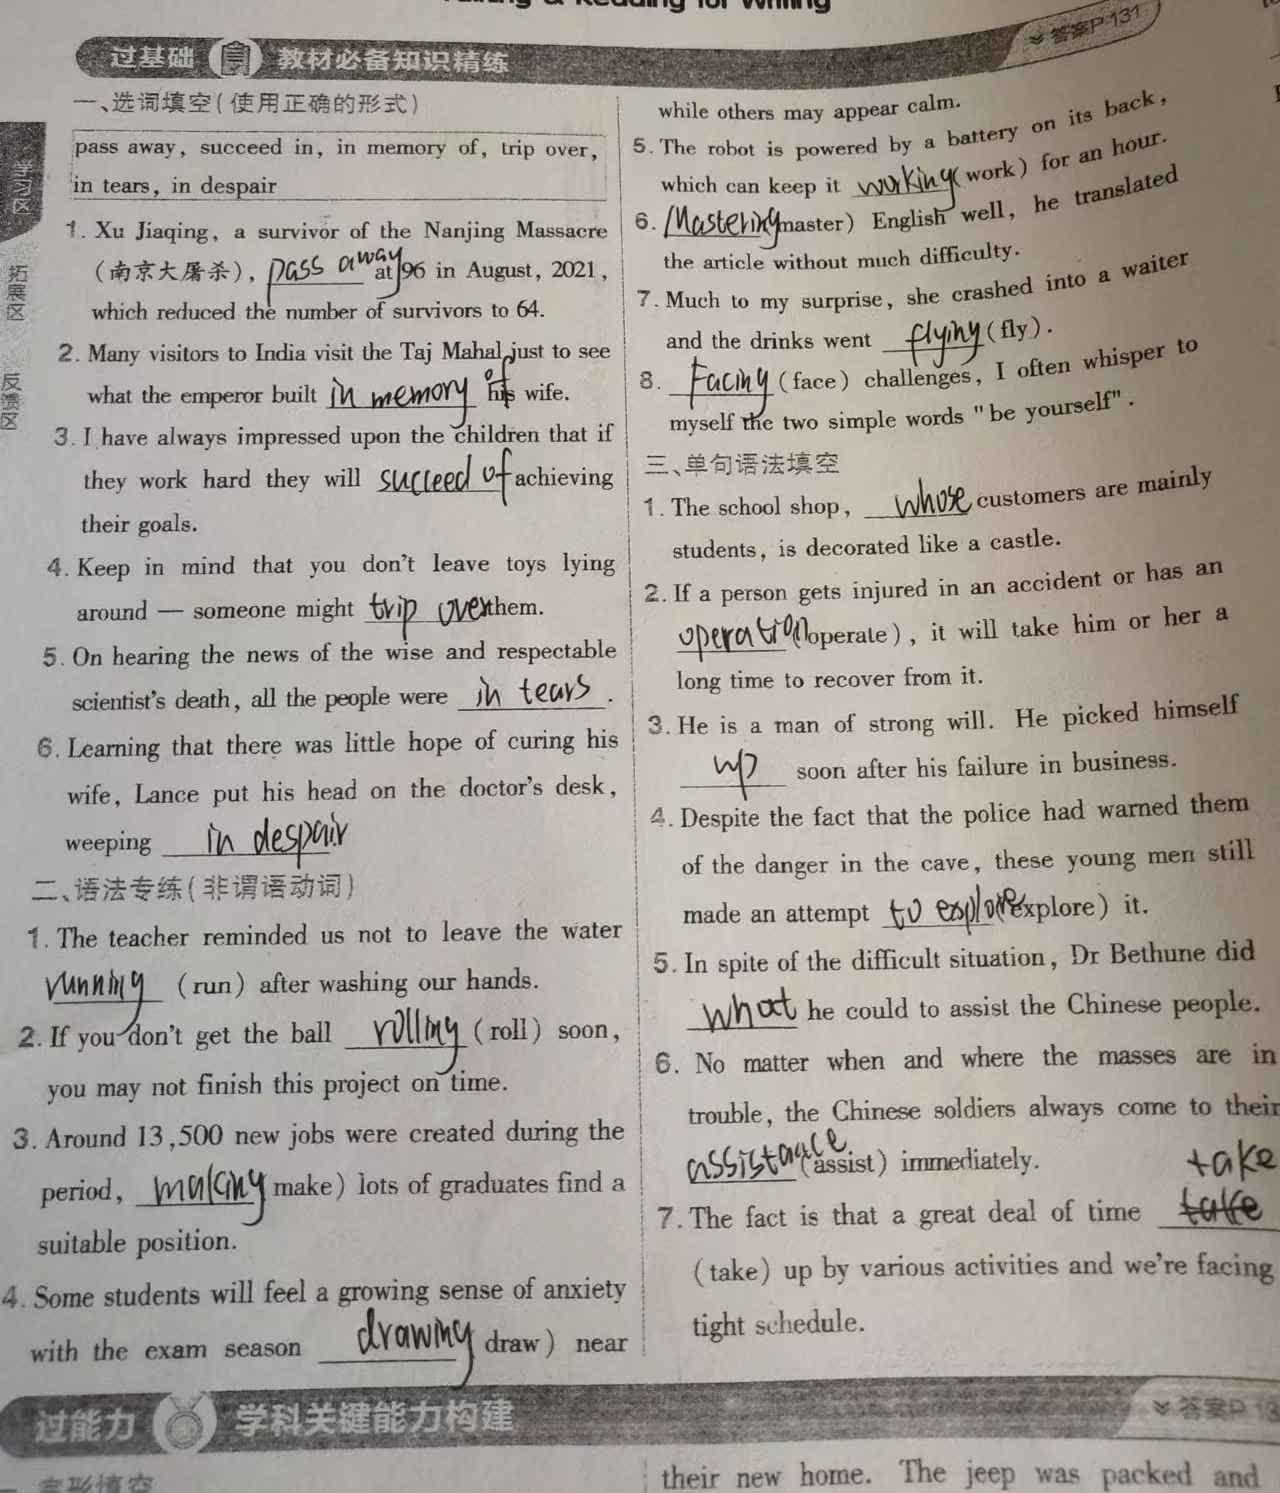 Talking & Reading for Writing
过基础 盲 教材必备知识精练
答案P 131
学习区
拓展区
反馈区
一、选词填空(使用正确的形式)
pass away, succeed in, in memory of, trip over,
in tears, in despair
1. Xu Jiaqing, a survivor of the Nanjing Massacre
(南京大屠杀), pass away at 96 in August, 2021,
which reduced the number of survivors to 64.
2. Many visitors to India visit the Taj Mahal just to see
what the emperor built in memory of his wife.
3. I have always impressed upon the children that if
they work hard they will succeed of achieving
their goals.
4. Keep in mind that you don't leave toys lying
around — someone might trip over them.
5. On hearing the news of the wise and respectable
scientist's death, all the people were in tears.
6. Learning that there was little hope of curing his
wife, Lance put his head on the doctor's desk,
weeping in despair.
二、语法专练(非谓语动词)
1. The teacher reminded us not to leave the water
running (run) after washing our hands.
2. If you don't get the ball rolling (roll) soon,
you may not finish this project on time.
3. Around 13,500 new jobs were created during the
period, making (make) lots of graduates find a
suitable position.
4. Some students will feel a growing sense of anxiety
with the exam season drawing (draw) near
while others may appear calm.
5. The robot is powered by a battery on its back,
which can keep it working (work) for an hour.
6. Mastering (master) English well, he translated
the article without much difficulty.
7. Much to my surprise, she crashed into a waiter
and the drinks went flying (fly).
8. Facing (face) challenges, I often whisper to
myself the two simple words "be yourself".
三、单句语法填空
1. The school shop, whose customers are mainly
students, is decorated like a castle.
2. If a person gets injured in an accident or has an
operation (operate), it will take him or her a
long time to recover from it.
3. He is a man of strong will. He picked himself
up soon after his failure in business.
4. Despite the fact that the police had warned them
of the danger in the cave, these young men still
made an attempt to explore (explore) it.
5. In spite of the difficult situation, Dr Bethune did
what he could to assist the Chinese people.
6. No matter when and where the masses are in
trouble, the Chinese soldiers always come to their
assistance (assist) immediately.
take
7. The fact is that a great deal of time take
(take) up by various activities and we're facing
tight schedule.
过能力 学科关键能力构建
答案P 13
完形填空
their new home. The jeep was packed and